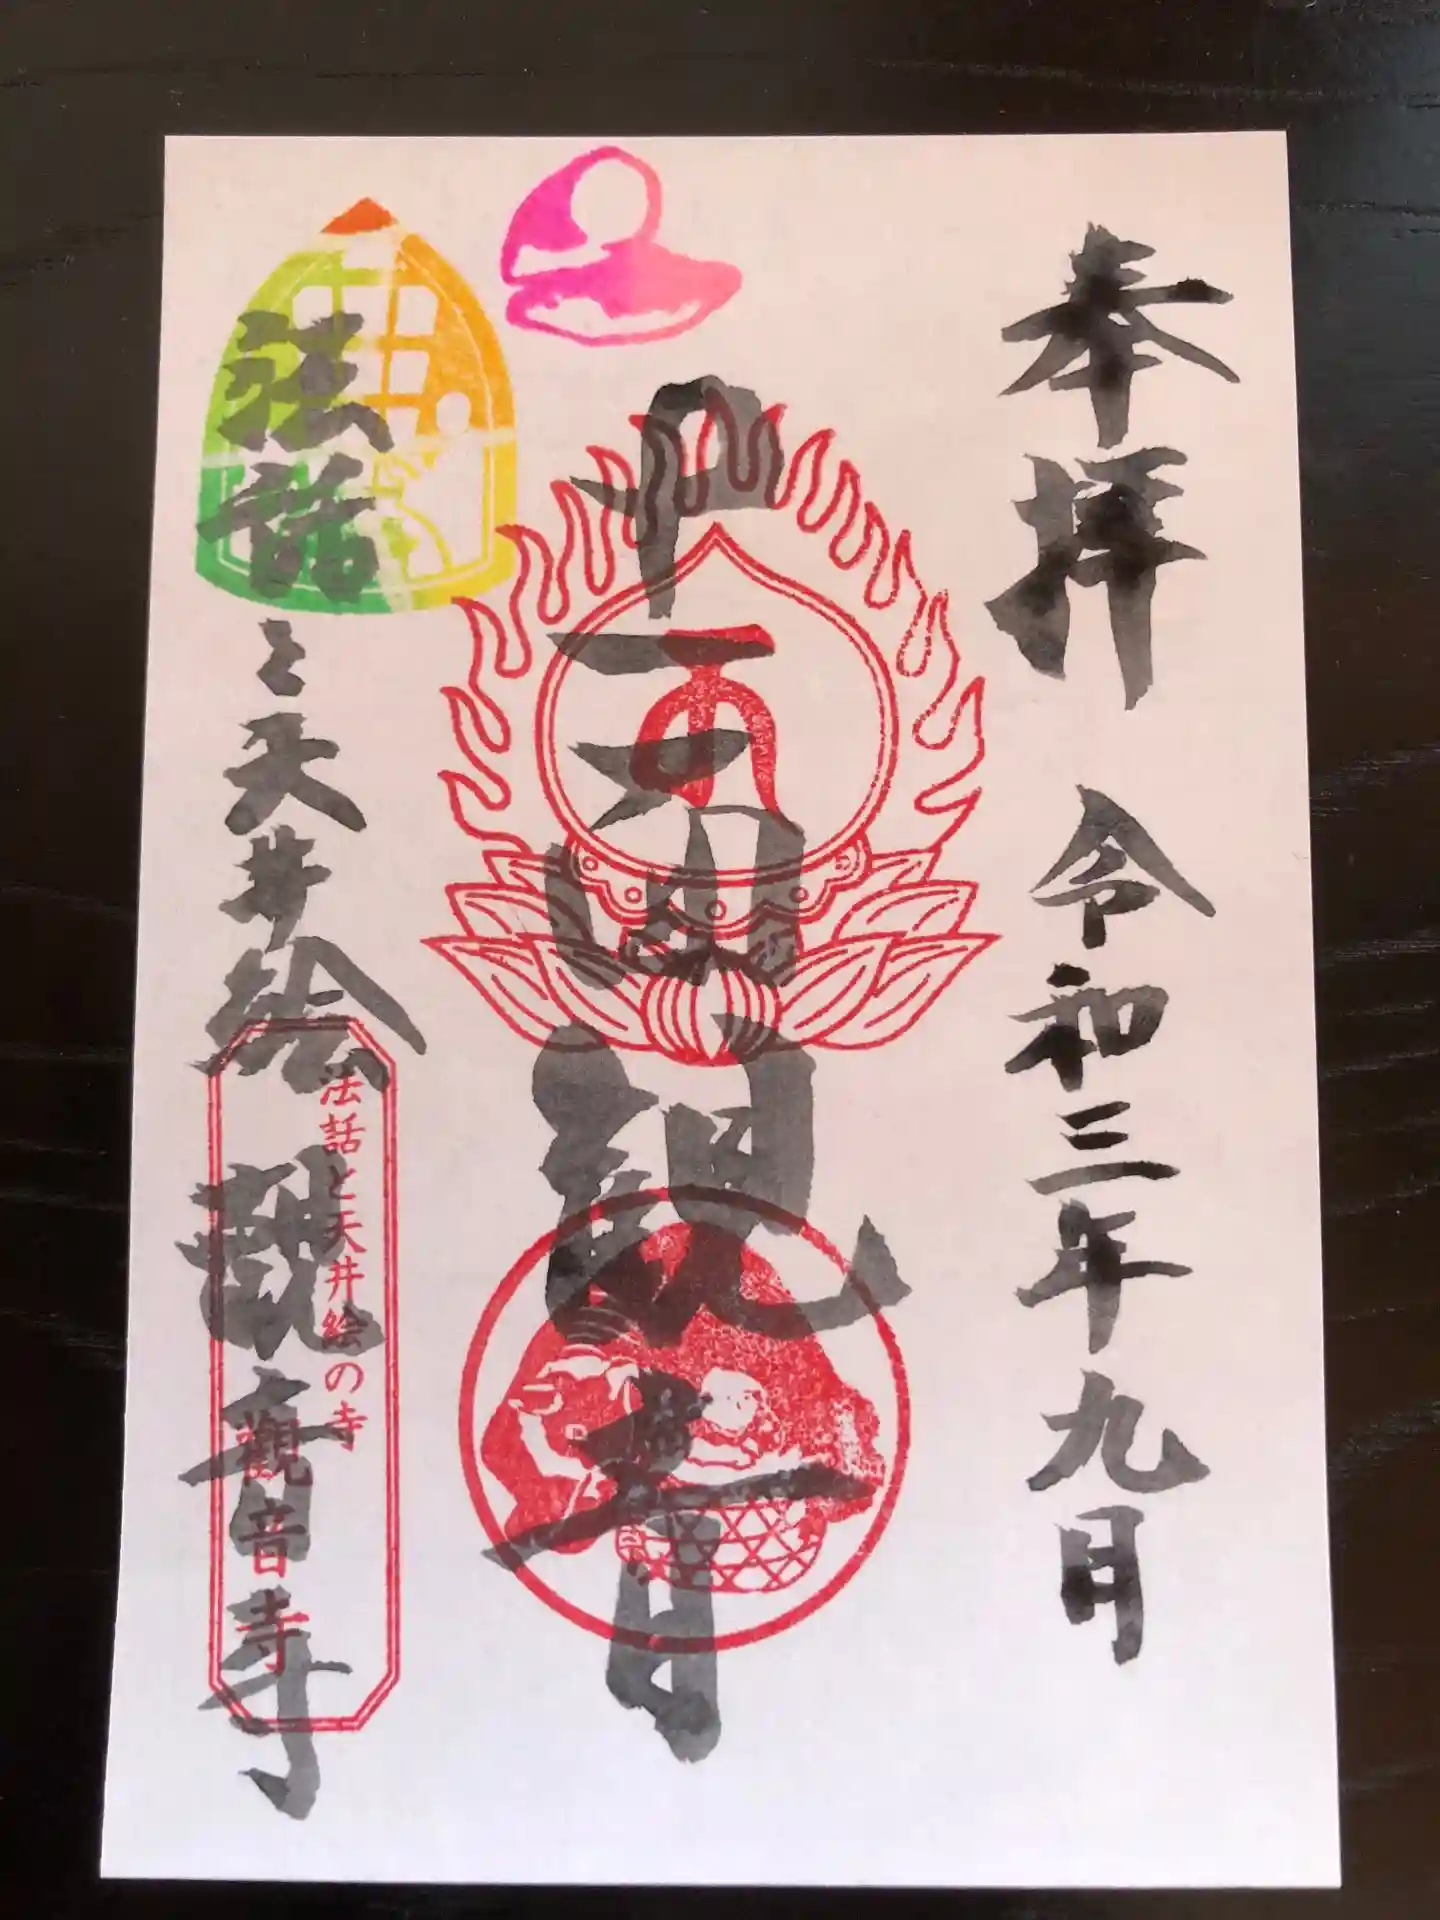 奉拝 令和三年九月
十一面観音
法話と天井絵 観音寺
法話と天井絵の寺
觀音寺